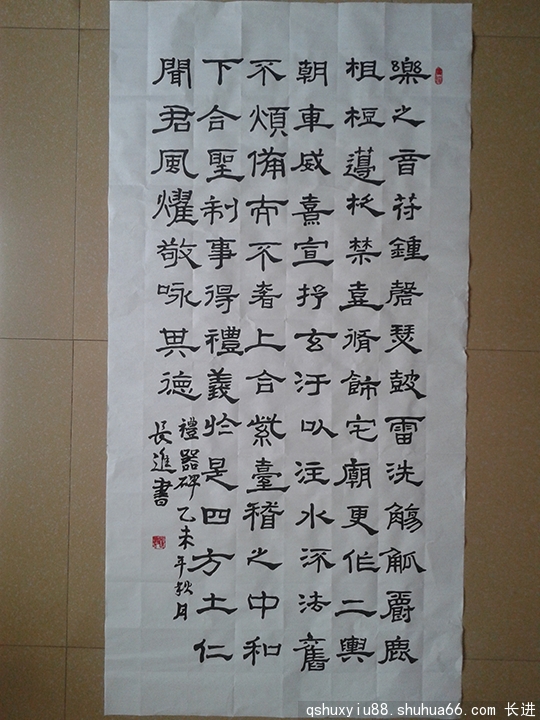 樂之音苻鍾磬瑟鼓雷洗觴觚爵鹿
柤梪籩柉禁壺脩飾宅廟更作二輿
朝車威熹宣抒玄汙以注水流法舊
不煩備而不奢上合紫臺稽之中和
下合聖制事得禮義於是四方土仁
聞君風燿敬咏其德
禮器碑乙未年秋月
長進書
qshuxyiu88.shuhua66.com 长进